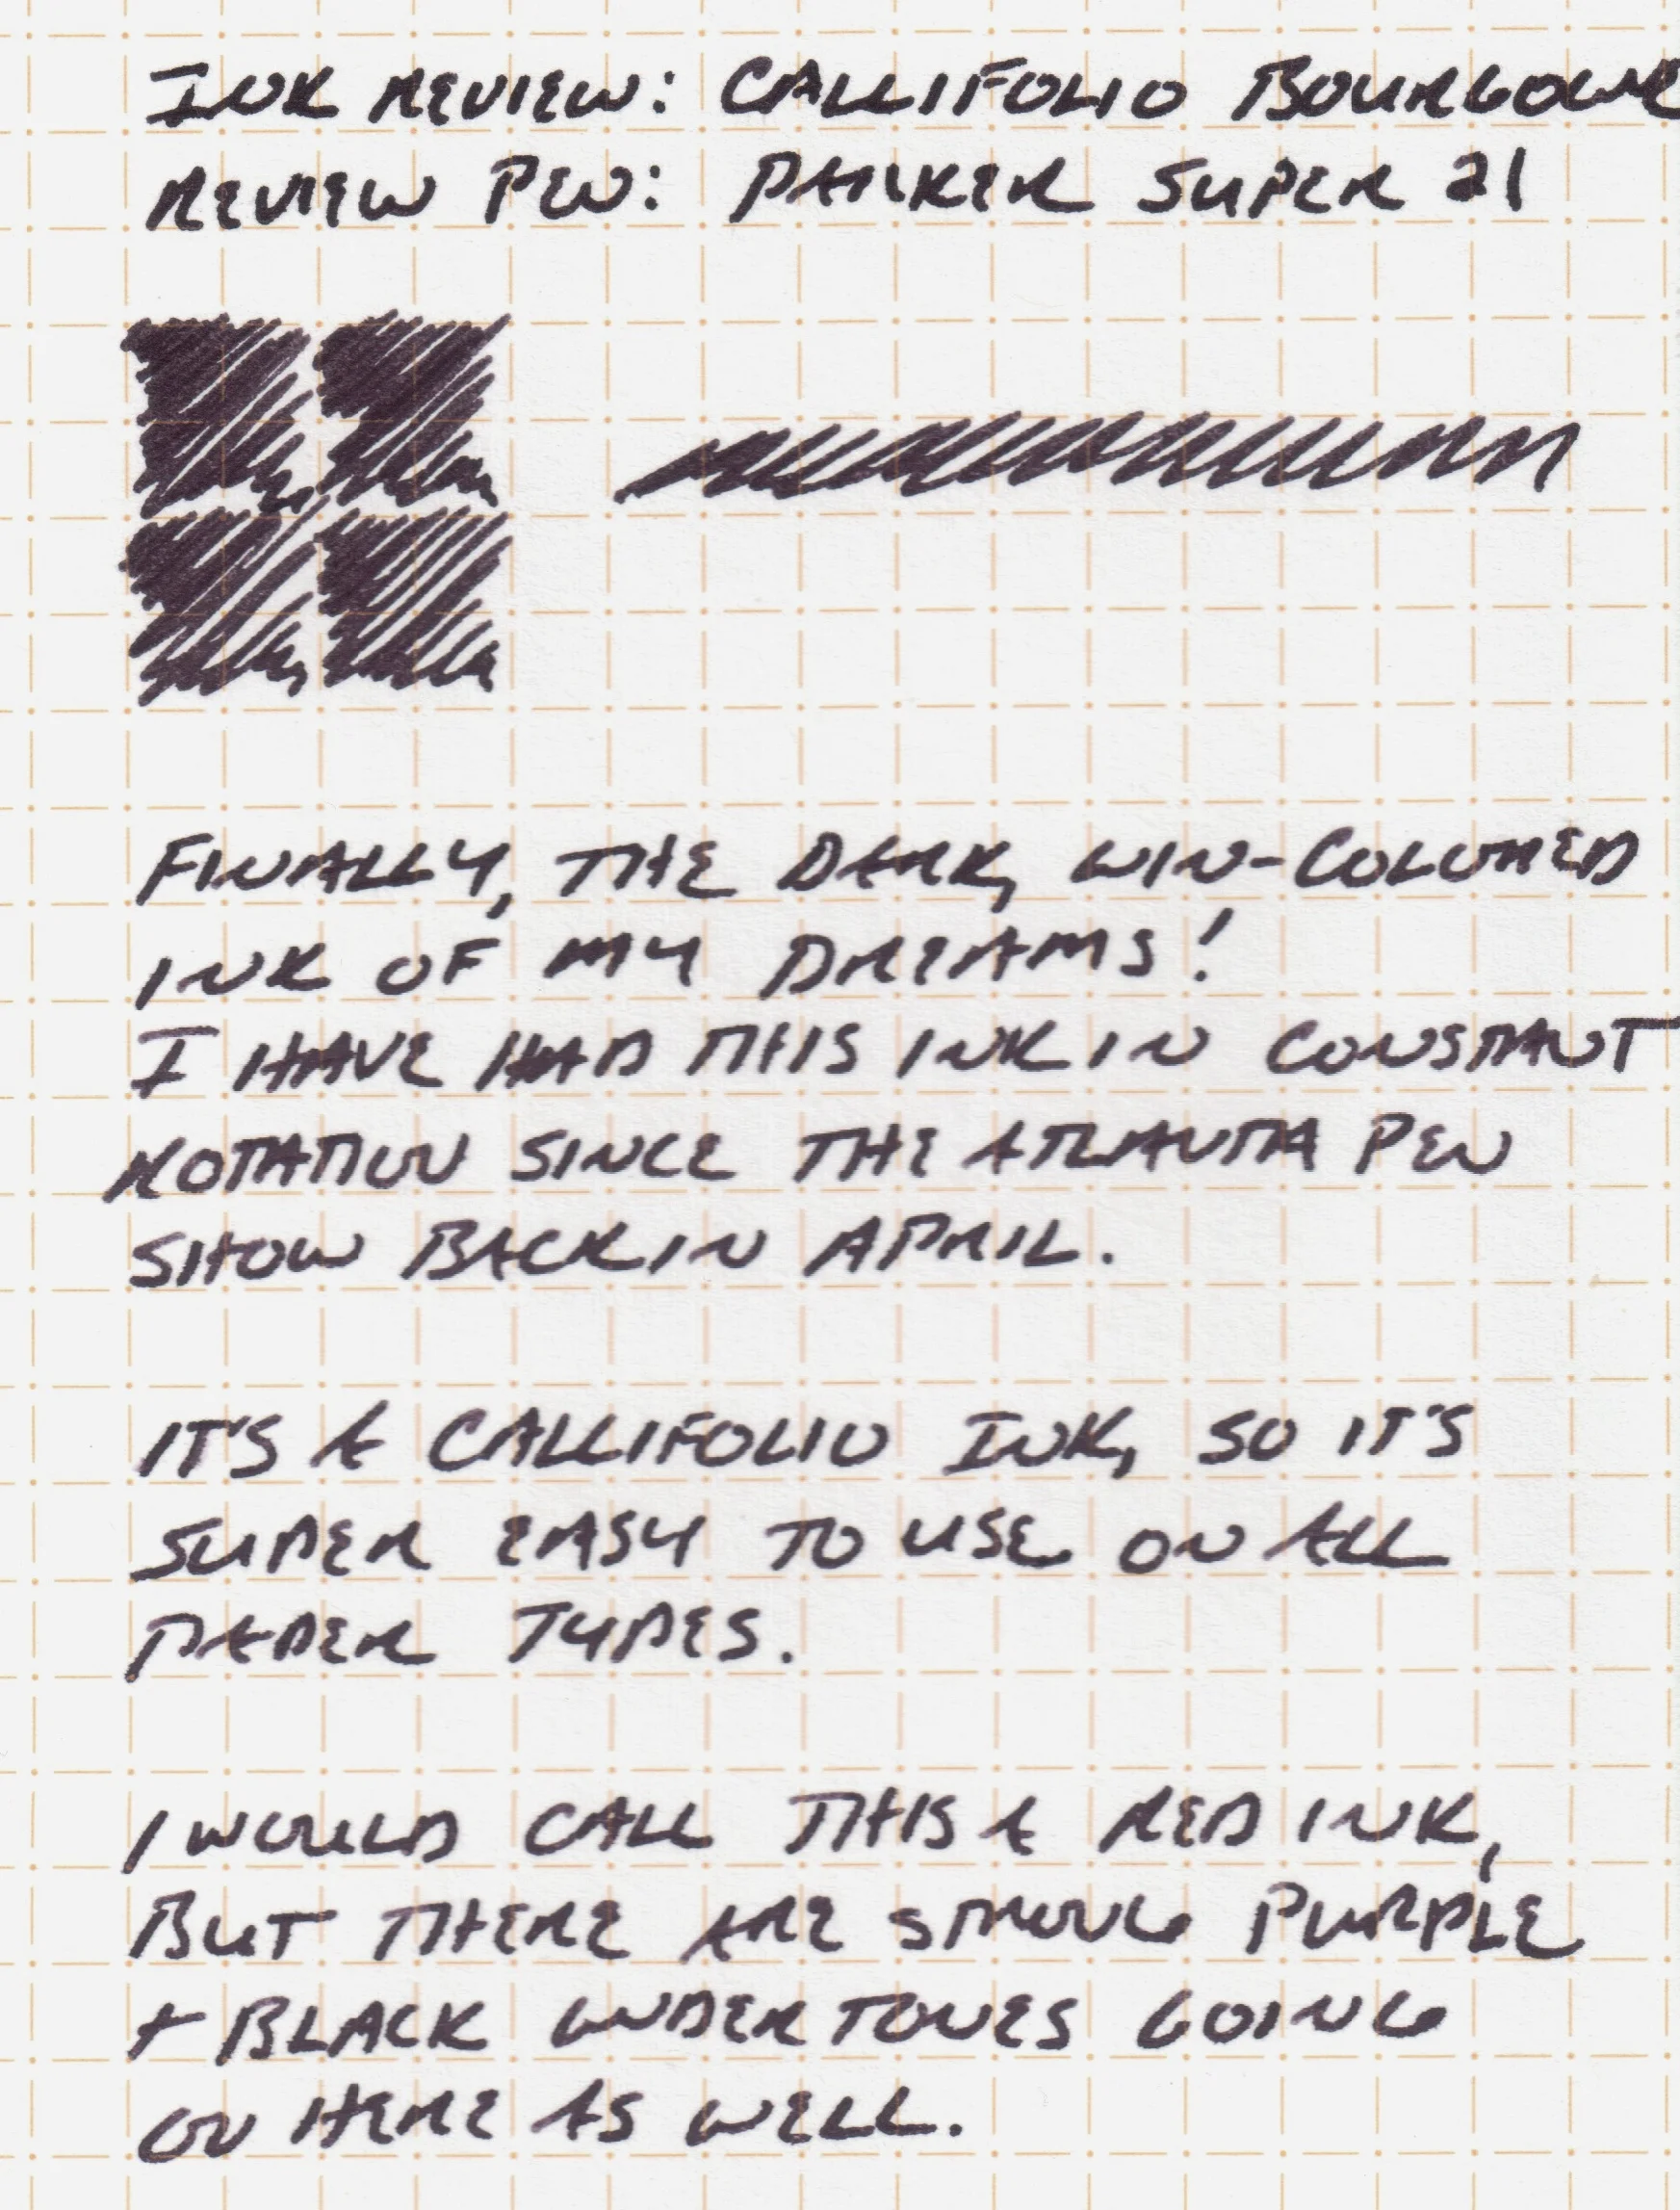 INK REVIEW: CALLIFOLIO BOURGOGNE
REVIEW PEN: PARKER SUPER 21
FINALLY, THE DARK, WIN-COLOURED
INK OF MY DREAMS!
I HAVE HAD THIS INK IN CONSTANT
ROTATION SINCE THE ATLANTA PEN
SHOW BACK IN APRIL.
IT'S A CALLIFOLIO INK, SO IT'S
SUPER EASY TO USE ON ALL
PAPER TYPES.
I WOULD CALL THIS A RED INK,
BUT THERE ARE STRONG PURPLE
+ BLACK UNDERTONES GOING
ON HERE AS WELL.